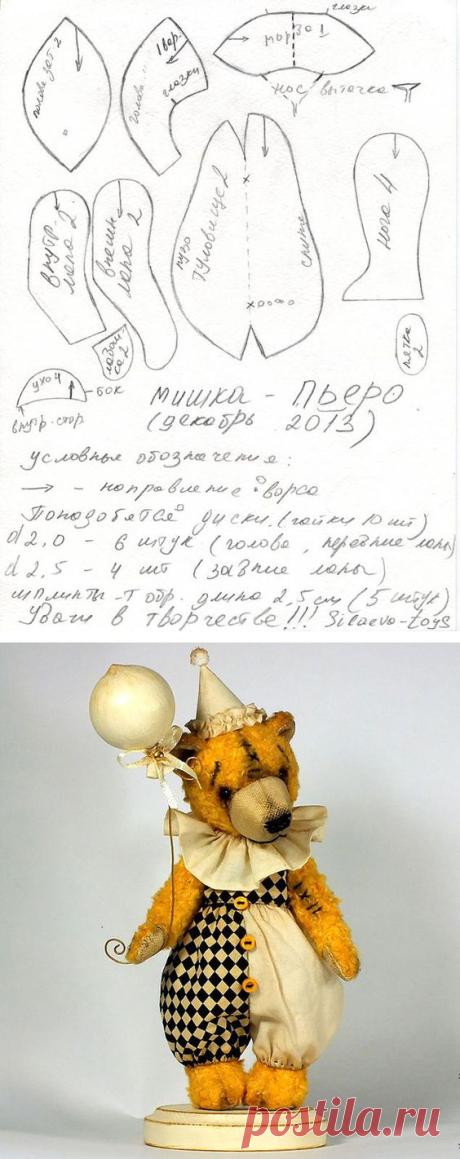 глазки
голова зат 2
1 вор.
голова
глазки
нос выточка
пузо
туловище 2
спина
нога 4
внутр. лапа 2
внешн. лапа 2
пятка 2
ухо 4
бок
внутр. стор
мишка - Пьеро
(декабрь 2013)
условные обозначения:
→ - направление ворса
Понадобятся диски. (гайки 10 шт)
d 2,0 - 6 штук (голова, передние лапы)
d 2,5 - 4 шт (задние лапы)
шплинты - Т обр. длина 2,5 см (5 штук)
Удачи в творчестве!!! Silaeva-toys
postila.ru